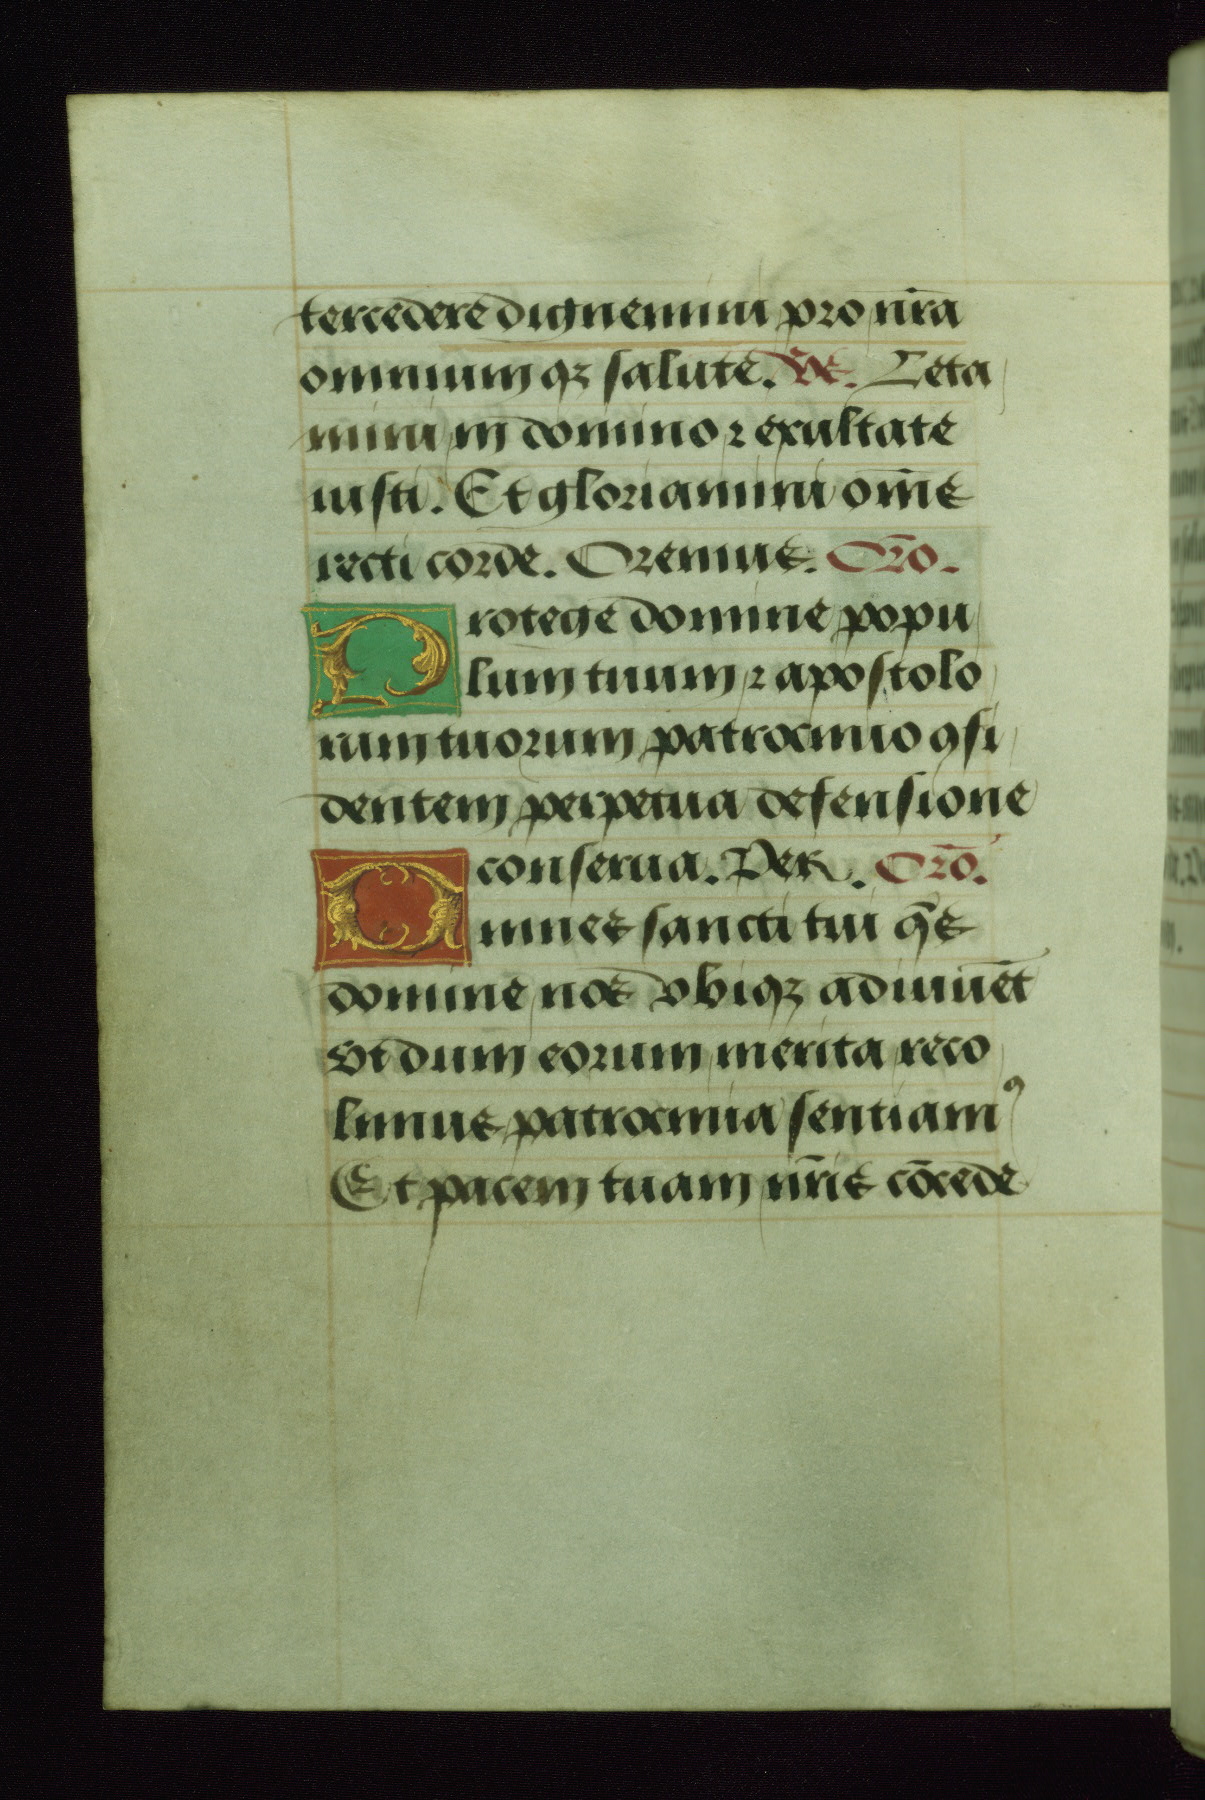 tercedere dignemini pro nr̄a
omniumqꝫ salute. V̄s. Leta
mini in domino ⁊ exultate
iusti. Et gloriamini om̄s
recti corde. Oremus. Or̄o.
Protege domine popu
lum tuum ⁊ apostolo
rum tuorum patrocinio ꝯfi
dentem perpetua defensione
conserua. Per. Or̄o.
Omnes sancti tui q̄s
domine nos vbiqꝫ adiuuēt
vt dum eorum merita reco
limus patrocinia sentiamꝰ
Et pacem tuam nr̄is cōcede